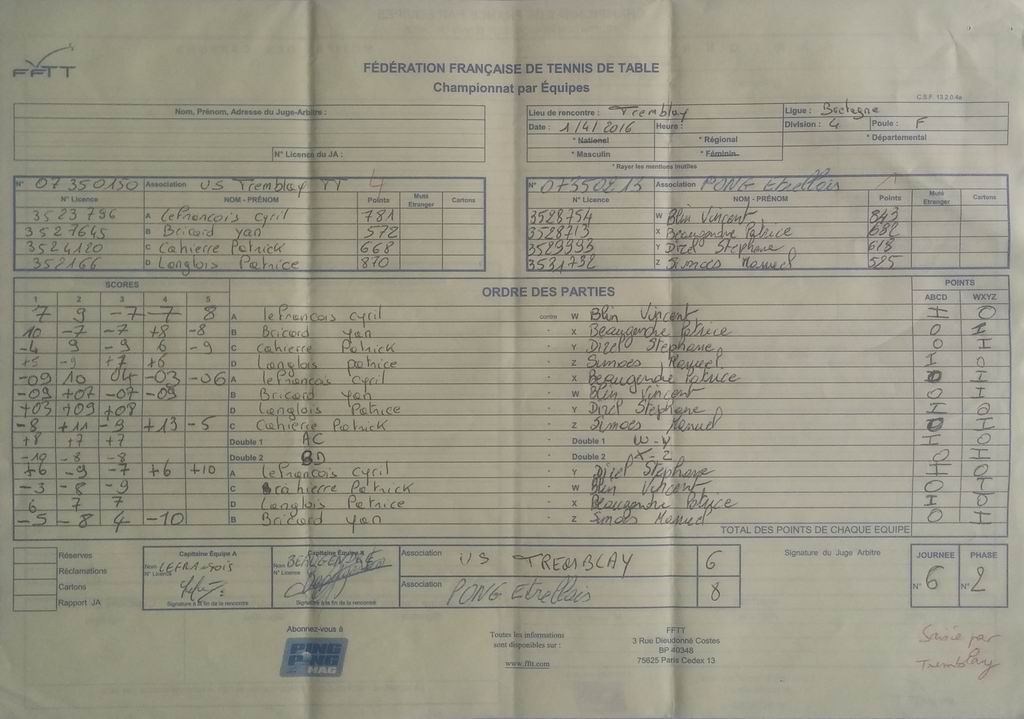 FFTT
FÉDÉRATION FRANÇAISE DE TENNIS DE TABLE
Championnat par Équipes
C.S.F. 13.2.0.4a
Nom, Prénom, Adresse du Juge-Arbitre :
N° Licence du JA :
Lieu de rencontre : Tremblay
Ligue : Bretagne
Date : 1/4/2016 Heure :
Division : 4 Poule : F
* National * Régional * Départemental
* Masculin * Féminin
* Rayer les mentions inutiles
N° 07350150 Association US Tremblay TT 4
N° Licence NOM - PRÉNOM Points Muté Etranger Cartons
3523796 A Lefrancois cyril 781
3527645 B Bricard yan 572
3524120 C Cahierre Patrick 668
352166 D Langlois Patrice 870
N° 07350213 Association PONG Etrellais 1
N° Licence NOM - PRÉNOM Points Muté Etranger Cartons
3528754 W Blin Vincent 843
3528713 X Beaugendre Patrice 682
3529993 Y Dizel Stephane 613
3531732 Z Simoes Manuel 525
SCORES ORDRE DES PARTIES POINTS
1 2 3 4 5 ABCD WXYZ
7 9 -7 -7 8 A lefrancois cyril contre W Blin Vincent I O
10 -7 -7 +8 -8 B Bricard yan - X Beaugendre Patrice O I
-4 9 -9 6 -9 C Cahierre Patrick - Y Dizel Stephane O I
+5 -9 +7 +6 D Langlois patrice - Z Simoes Manuel I O
-09 10 04 -03 -06 A lefrancois cyril - X Beaugendre Patrice O I
-09 +07 -07 -09 B Bricard yan - W Blin Vincent O I
+03 +09 +08 D Langlois Patrice - Y Dizel Stephane I O
-8 +11 -9 +13 -5 C Cahierre Patrick - Z Simoes Manuel O I
+8 +7 +7 Double 1 AC - Double 1 W-Y I O
-10 -8 -8 Double 2 BD - Double 2 X-Z O I
+6 -9 -7 +6 +10 A Lefrancois cyril - Y Dizel Stephane I O
-3 -8 -9 C Cahierre Patrick - W Blin Vincent O I
6 7 7 D Langlois Patrice - X Beaugendre Patrice I O
-5 -8 4 -10 B Bricard yan - Z Simoes Manuel O I
TOTAL DES POINTS DE CHAQUE EQUIPE
Réserves
Réclamations
Cartons
Rapport JA
Capitaine Équipe A
Nom LEFRANCOIS
N° Licence
Signature à la fin de la rencontre
Capitaine Équipe B
Nom BEAUGENDRE
N° Licence
Signature à la fin de la rencontre
Association US TREMBLAY 6
Association PONG Etrellais 8
Signature du Juge Arbitre
JOURNEE N° 6
PHASE N° 2
Abonnez-vous à
PING PONG MAG
Toutes les informations
sont disponibles sur :
www.fftt.com
FFTT
3 Rue Dieudonné Costes
BP 40348
75625 Paris Cedex 13
Saisie par
Tremblay